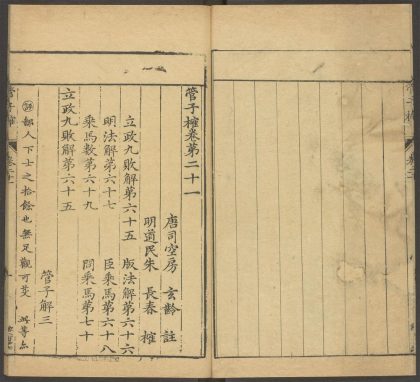 管子榷卷第二十一
唐司空房 玄齡 註
明道民朱 長春 榷
立政九敗解第六十五 版法解第六十六
明法解第六十七 臣乘馬第六十八
乘馬數第六十九 問乘馬第七十
立政九敗解第六十五
管子解三
評 鄙人下士之拾餘也無足觀可芟
管子榷 卷二十一